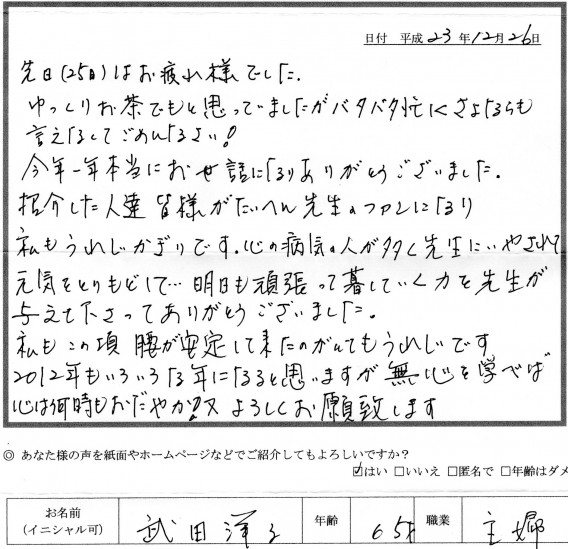 日付 平成 23 年 12 月 26 日
先日(25日)はお疲れ様でした。
ゆっくりお茶でもと思っていましたがバタバタ忙しくさよならも
言えなくてごめんなさい!
今年一年本当にお世話になりありがとうございました。
紹介した人達 皆様がたいへん先生のファンになり
私もうれしいかぎりです。心の病気の人が多く先生にいやされて
元気をとりもどして…明日も頑張って暮していく力を先生が
与えて下さってありがとうございました。
私もこの頃 腰が安定して来たのがとてもうれしいです
2012年もいろいろな年になると思いますが 無心を学べば
心は何時もおだやか!又 よろしくお願致します
◎ あなた様の声を紙面やホームページなどでご紹介してもよろしいですか?
☑はい □いいえ □匿名で □年齢はダメ
お名前 (イニシャル可) 武田洋子 年齢 65才 職業 主婦